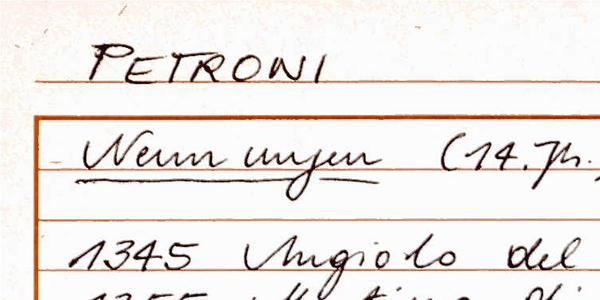 PETRONI
Nennungen (14. Jh.)
1345 Angiolo del
1355